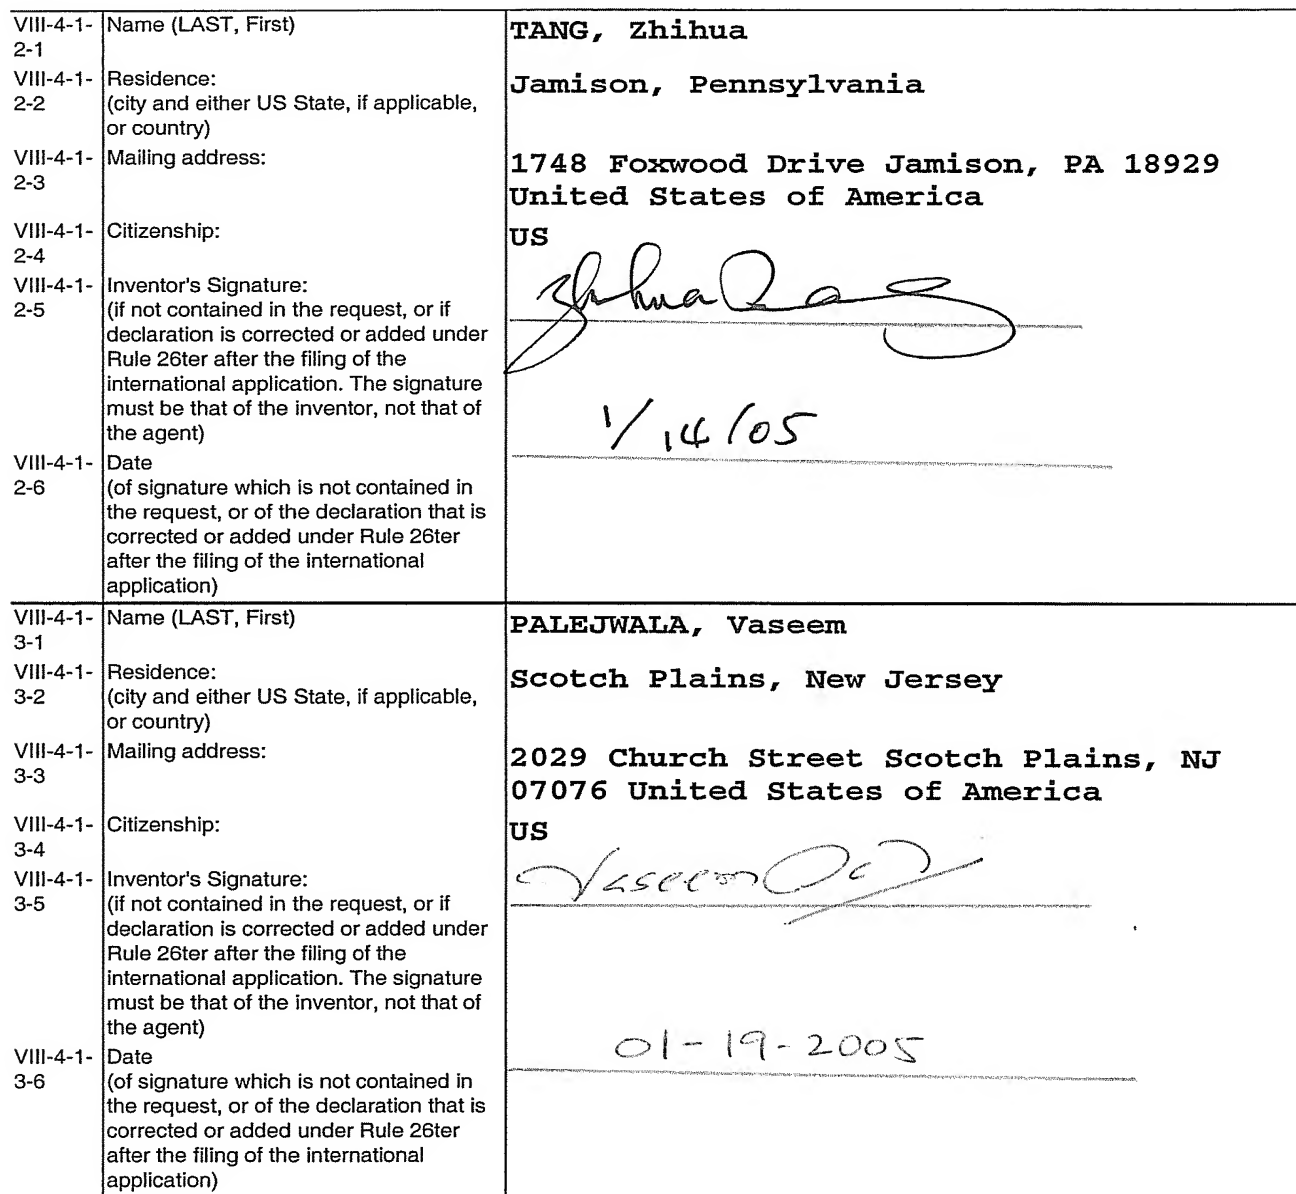 VIII-4-1-2-1 Name (LAST, First) TANG, Zhihua
VIII-4-1-2-2 Residence: Jamison, Pennsylvania
(city and either US State, if applicable,
or country)
VIII-4-1-2-3 Mailing address: 1748 Foxwood Drive Jamison, PA 18929
United States of America
VIII-4-1-2-4 Citizenship: US
VIII-4-1-2-5 Inventor's Signature: Zhihua Tang
(if not contained in the request, or if
declaration is corrected or added under
Rule 26ter after the filing of the
international application. The signature
must be that of the inventor, not that of
the agent)
1/14/05
VIII-4-1-2-6 Date
(of signature which is not contained in
the request, or of the declaration that is
corrected or added under Rule 26ter
after the filing of the international
application)
VIII-4-1-3-1 Name (LAST, First) PALEJWALA, Vaseem
VIII-4-1-3-2 Residence: Scotch Plains, New Jersey
(city and either US State, if applicable,
or country)
VIII-4-1-3-3 Mailing address: 2029 Church Street Scotch Plains, NJ
07076 United States of America
VIII-4-1-3-4 Citizenship: US
VIII-4-1-3-5 Inventor's Signature: Vaseem
(if not contained in the request, or if
declaration is corrected or added under
Rule 26ter after the filing of the
international application. The signature
must be that of the inventor, not that of
the agent)
01-19-2005
VIII-4-1-3-6 Date
(of signature which is not contained in
the request, or of the declaration that is
corrected or added under Rule 26ter
after the filing of the international
application)